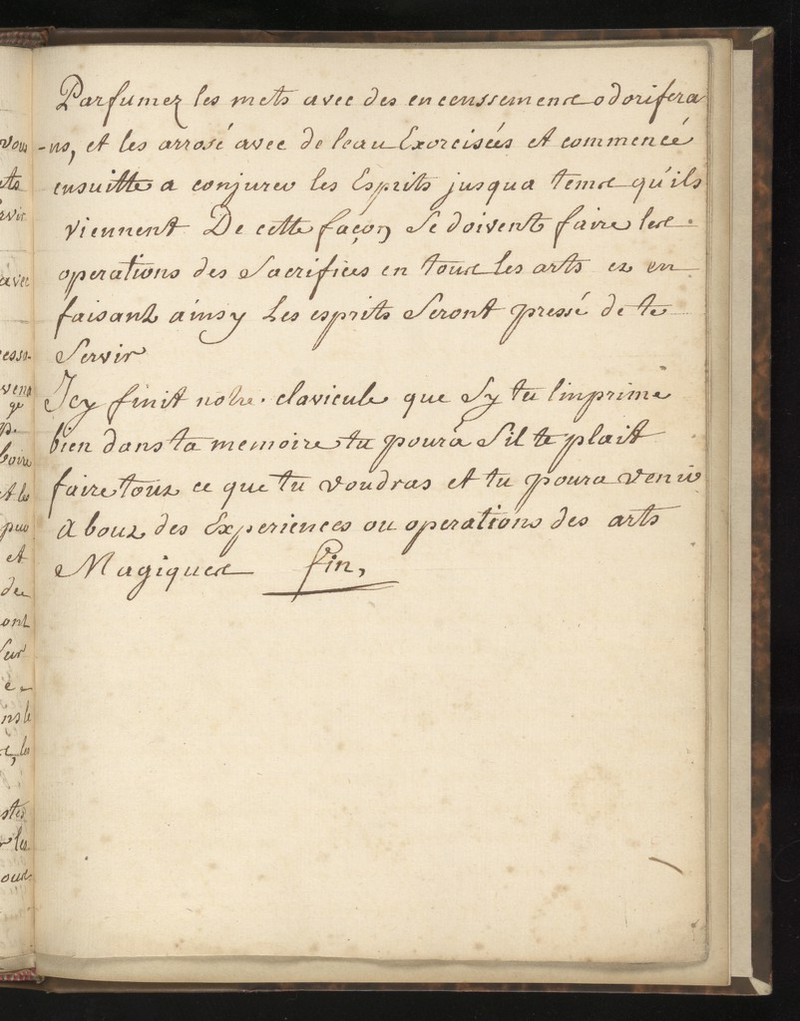 Parfumez les mets avec des encenssement odorifera
-ns, et les arrosé avec de leau Exorcisées et commencé
ensuitte a conjurer les Esprits jusqua tems qu'ils
viennent De cette façon Se doivent faire les
operations des Sacrifices en tous les arts et en
faisant ainsy Les esprits Seront pressé de te
Servir
Icy finit notre clavicule que Sy tu linprime
bien dans ta memoire tu poura Sil te plait
faire tout ce que tu voudras et tu poura venir
A bout des Experiences ou operations des arts
Magiques fin,